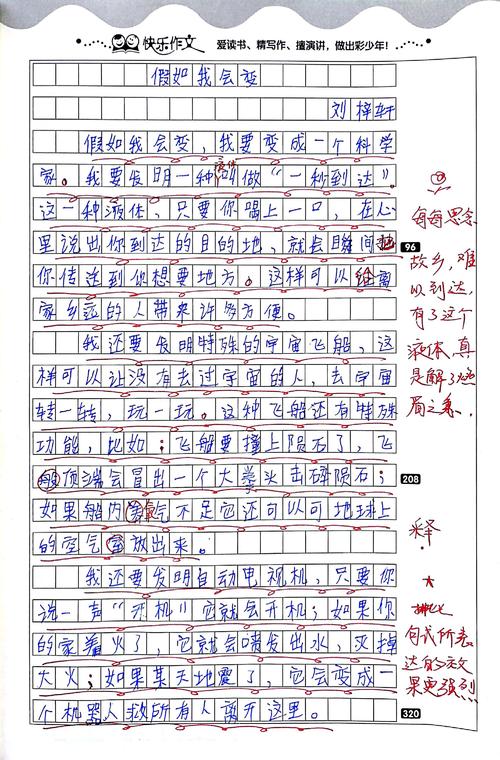 快乐作文 爱读书、精写作、擅演讲,做出彩少年!
假如我会变
刘梓轩
假如我会变,我要变成一个科学
家。我要发明一种液体叫做“一秒到达”。
这一种液体,只要你喝上一口,在心
里说出你到达的目的地,就会瞬间把 96
你传送到你想要地方。这样可以给离
家乡远的人带来许多方便。
我还要发明特殊的宇宙飞船,这
样可以让没有去过宇宙的人,去宇宙
转一转,玩一玩。这种飞船还有特殊
功能,比如:飞船要撞上陨石了,飞
船顶端会冒出一个大拳头击碎陨石; 208
如果船内氧气不足它还可以可地球上
的空气放出来。
我还要发明自动电视机,只要你
说一声“开机”它就会开机;如果你
的家着火了,它就会喷发出水,灭掉
大火;如果某天地震了,它会变成一
个机器人救所有人离开这里。 320
每每思念
故乡,难
以到达,
有了这个
液体,真
是解了燃
眉之急。
释
排比
句式所表
达的效
果更强烈